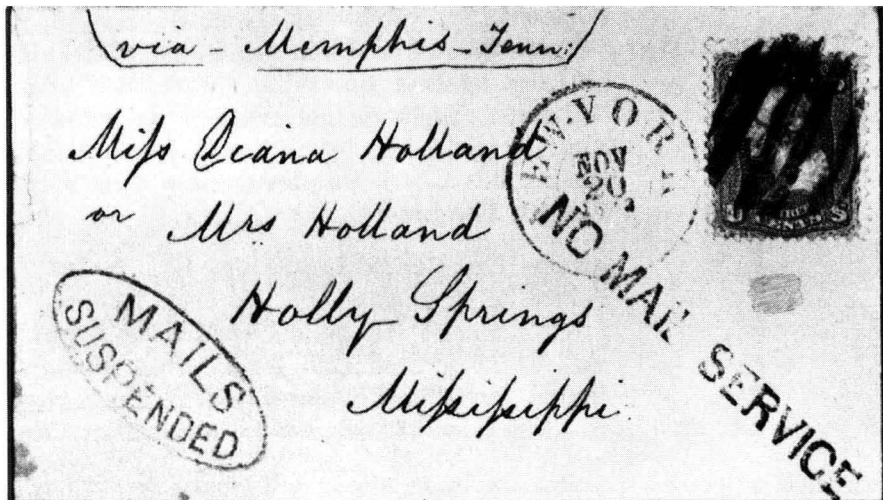 via - Memphis - Tenn:
Miſs Deana Holland
or
Mrs Holland
Holly Springs
Miſsiſsippi
NEW-YORK
NOV
20
NO MAIL SERVICE
MAILS
SUSPENDED
U S